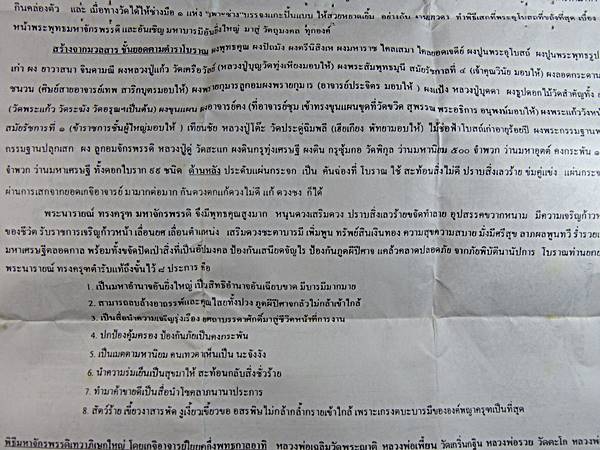 กินคล่องตัว และ เมื่อทางวัดได้ให้ช่างมือ ๑ แห่ง "เพาะช่าง" บรรจงแกะปั้นแบบ ให้สวยหยาดเยิ้ม อย่างกับ ทำพิธีเสกที่พระอุโบสถที่ขลังที่สุด เบื้อง
หน้าพระพุทธมหาจักรพรรดิ์ และอัญเชิญมหาบารมีอันศักดิ์สิทธิ์ มาสู่ วัตถุมงคล ทุกองค์
สร้างจากมวลสาร ชั้นยอดตามตำราโบราณ ผงพุทธคุณ ผงปัถมัง ผงตรีนิสิงเห ผงมหาราช ไคลเสมา ไคลยอดเจดีย์ ผงปูนพระอุโบสถ์ ผงปูนพระพุทธรูป
เก่า ผง ยาวาสนา จินดามณี ผงหลวงปู่แก้ว วัดเครือวัลย์ (หลวงปู่บุญวัดทุ่งเหียงมอบให้) ผงพระสมัยพุทธมุนี สมัยรัชกาลที่ ๔ (เจ้าคุณวินัย มอบให้) ผงลอดกระดาน
ชนวน (ศิษย์สายอาจารย์เทพ สาริกบุตรมอบให้) ผงพรายกุมารลูกอมผงพรายกุมาร (อาจารย์ประจิตร มอบให้ ) ผงแป้ง หลวงปู่บุดดา ผงธูปดอกไม้วัดสำคัญทั้ง
(วัดพระแก้ว วัดระฆัง วัดอรุณฯเป็นต้น) ผงขุนแผน ผงอาจารย์คง (ที่อาจารย์ชุม เข้าทรงขุนแผนขุดที่วัดขวิด สุพรรณ พระอธิการ อนุพงษ์มอบให้) ผงพระแก้ววังหน้า
สมัยรัชการที่ ๑ (ข้าราชการชั้นผู้ใหญ่มอบให้ ) เทียนชัย หลวงปู่โต๊ะ วัดประดู่ฉิมพลี (เฮียเกียง พัทยามอบให้) ไม้ช่อฟ้าโบสถ์เก่าอายุร้อยปี ผงพระกรรมฐาน
กรรมฐานปลุกเสก ผง ลูกอมจักรพรรดิ หลวงปู่ดู่ วัดสะแก ผงดินกรุทุ่งเศรษฐี ผงดิน กรุซุ้มกอ วัดพิกุล ว่านมหานิยม ๕๐๐ จำพวก ว่านมหาอุตต์ คงกระพัน ๑
จำพวก ว่านมหาเศรษฐี ทั้งดอกใบราก ๙๙ ชนิด ด้านหลัง ประดับแผ่นกระจก เป็น คันฉ่องที่ โบราณ ใช้ สะท้อนสิ่งไม่ดี ปราบสิ่งเลวร้าย ข่มคู่แข่ง แผ่นกระจก
ผ่านการเสกจากยอดเกจิอาจารย์ มามากต่อมาก กันดวงตกแก้ดวงไม่ดี แก้ ดวงชง ก็ได้
พระนารายณ์ ทรงครุฑ มหาจักรพรรดิ์ จึงมีพุทธคุณสูงมาก หนุนดวงเสริมดวง ปราบสิ่งเลวร้ายขจัดทำลาย อุปสรรคขวากหนาม มีความเจริญก้าวหน้า
ของชีวิต รับราชการเจริญก้าวหน้า เลื่อนยศ เลื่อนตำแหน่ง เสริมดวงชะตาบารมี เพิ่มพูน ทรัพย์สินเงินทอง ความสุขความสบาย มั่งมีศรีสุข ลาภผลพูนทวี ร่ำรวย
มหาเศรษฐีตลอดกาล พร้อมทั้งขจัดปัดเป่าสิ่งที่เป็นอัปมงคล ป้องกันเสนียดจัญไร ป้องกันภูตผีปีศาจ แคล้วคลาดปลอดภัย จากภัยพิบัตินานัปการ โบราณท่านยกย่อง
พระนารายณ์ ทรงครุฑตำรับแท้ถึงขั้นไว้ ๘ ประการ คือ
1. เป็นมหาอำนาจอันยิ่งใหญ่ เป็นสิทธิอำนาจอันเฉียบขาด มีบารมีมากมาย
2. สามารถลบล้างอาถรรพ์และคุณไสยทั้งปวง ภูตผีปีศาจกลัวไม่กล้าเข้าใกล้
3. เป็นสื่อนำความเจริญรุ่งเรือง ยศถาบรรดาศักดิ์มาสู่ชีวิตหน้าที่การงาน
4. ปกป้องคุ้มครอง ป้องกันภัยเป็นคงกระพัน
5. เป็นเมตตามหานิยม คนเทวดาเห็นเป็น นะจังงัง
6. นำความร่มเย็นเป็นสุขมาให้ สะท้อนกลับสิ่งชั่วร้าย
7. ทำมาค้าขายดีเป็นสื่อนำโชคลาภนานาประการ
8. สัตว์ร้าย เขี้ยวงาสารพัด งูเงี้ยวเขี้ยวขอ อสรพิษไม่กล้ากล้ำกรายเข้าใกล้ เพราะเกรงตบะบารมีขององค์พญาครุฑเป็นที่สุด
พิธีมหาจักรพรรดิเทวาภิเษกใหญ่ โดยเกจิอาจารย์ยุคกึ่งพุทธกาลอาทิ หลวงพ่อเฉลิมวัดพระญาติ หลวงพ่อเพี้ยน วัดเกริ่นกฐิน หลวงพ่อรวย วัดตะโก